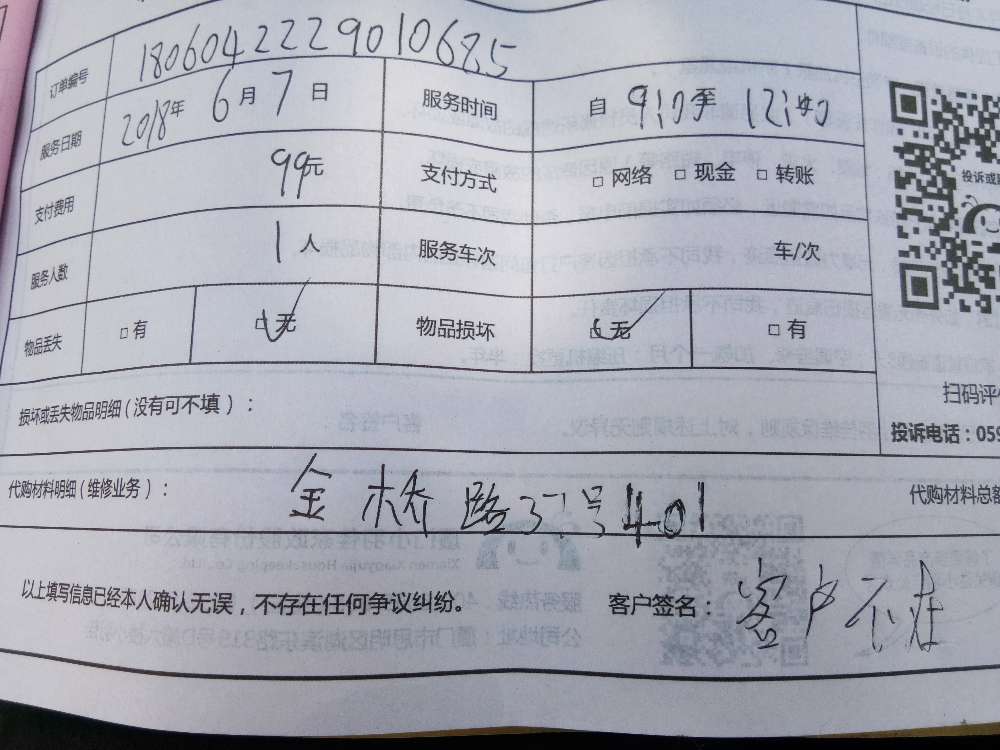 订单编号 1806042229010685
服务日期 2018年 6月 7日 服务时间 自 9:10至 12:40
支付费用 99元 支付方式 □ 网络 □ 现金 □ 转账
服务人数 1人 服务车次 车/次
物品丢失 □ 有 □ 无 物品损坏 □ 无 □ 有
投诉或
扫码评
损坏或丢失物品明细(没有可不填):
投诉电话:059
代购材料明细(维修业务): 金桥路37号401 代购材料总额
以上填写信息已经本人确认无误,不存在任何争议纠纷。 客户签名: 客户不在